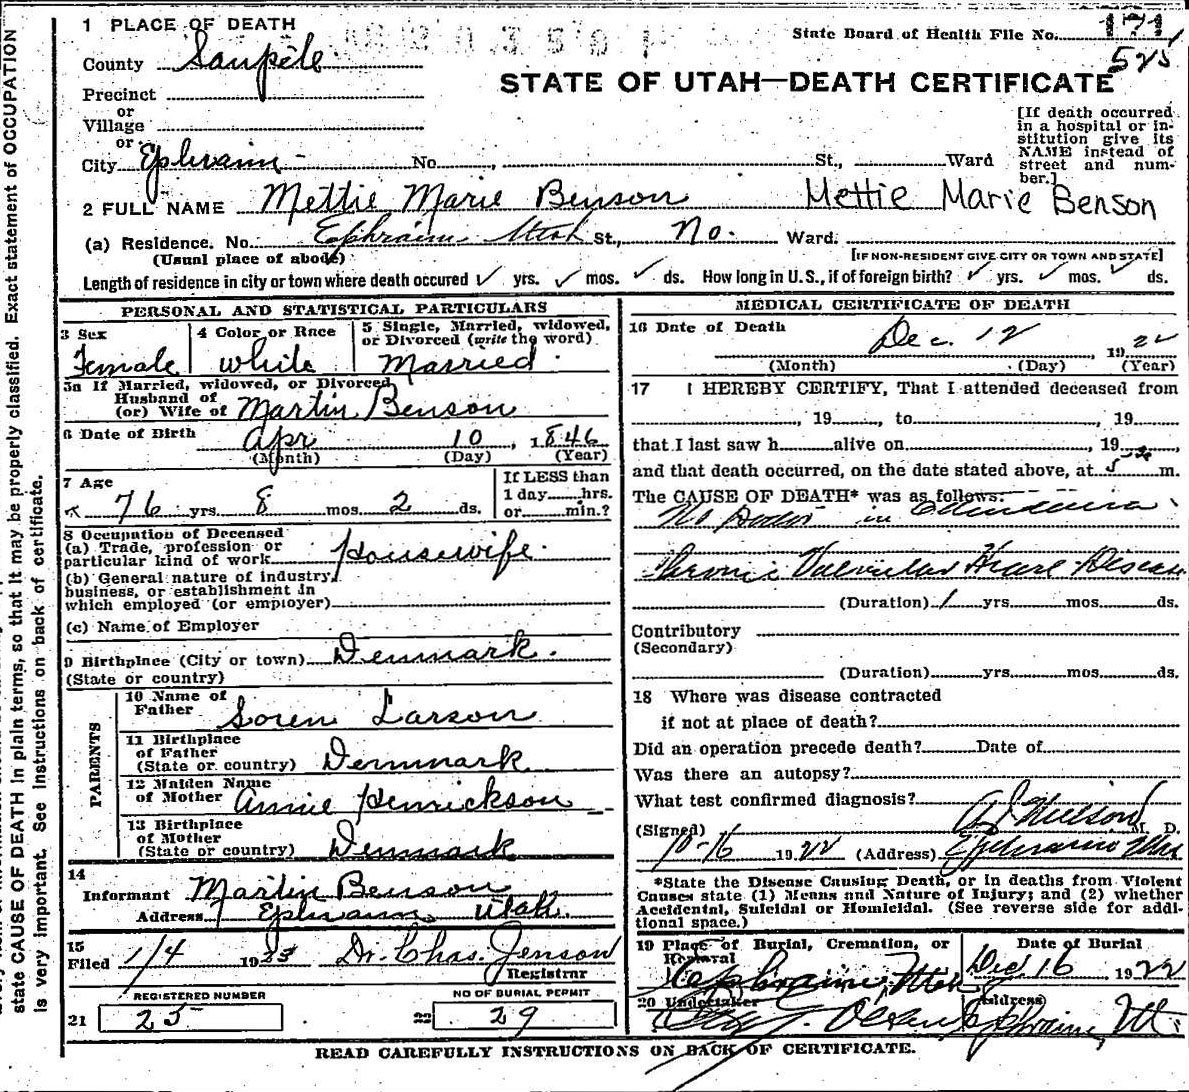 1 PLACE OF DEATH
State Board of Health File No. 171
525
County Sanpete
STATE OF UTAH—DEATH CERTIFICATE
Precinct
or
Village
or
City Ephraim No. , St., Ward
[If death occurred in a hospital or institution give its NAME instead of street and number.]
2 FULL NAME Mettie Marie Benson Mettie Marie Benson
(a) Residence. No. Ephraim Utah St., No. Ward.
(Usual place of abode) [IF NON-RESIDENT GIVE CITY OR TOWN AND STATE]
Length of residence in city or town where death occured ✓ yrs. ✓ mos. ✓ ds. How long in U.S., if of foreign birth? ✓ yrs. ✓ mos. ✓ ds.
PERSONAL AND STATISTICAL PARTICULARS
3 Sex
Female
4 Color or Race
white
5 Single, Married, widowed,
or Divorced (write the word)
Married
5a If Married, widowed, or Divorced
Husband of
(or) Wife of Martin Benson
6 Date of Birth Apr 10, 1846
(Month) (Day) (Year)
7 Age
76 yrs. 8 mos. 2 ds.
If LESS than
1 day hrs.
or min.?
8 Occupation of Deceased
(a) Trade, profession or
particular kind of work Housewife
(b) General nature of industry,
business, or establishment in
which employed (or employer)
(c) Name of Employer
9 Birthplace (City or town) Denmark.
(State or country)
PARENTS
10 Name of
Father Soren Larson
11 Birthplace
of Father
(State or country) Denmark
12 Maiden Name
of Mother Annie Henrickson
13 Birthplace
of Mother
(State or country) Denmark
14
Informant Martin Benson
Address Ephraim Utah.
15
Filed 1/4 1923 Dr. Chas. Jenson
Registrar
REGISTERED NUMBER
21 25
NO OF BURIAL PERMIT
22 29
MEDICAL CERTIFICATE OF DEATH
16 Date of Death Dec. 12 1922
(Month) (Day) (Year)
17 I HEREBY CERTIFY, That I attended deceased from
, 19 , to , 19
that I last saw h alive on , 19 ,
and that death occurred, on the date stated above, at 5 m.
The CAUSE OF DEATH* was as follows:
No Doctor in attendance
Chronic Valvular Heart Disease
(Duration) 1 yrs. mos. ds.
Contributory
(Secondary)
(Duration) yrs. mos. ds.
18 Where was disease contracted
if not at place of death?
Did an operation precede death? Date of
Was there an autopsy?
What test confirmed diagnosis?
(Signed) Nielson, M. D.
10-16 1922 (Address) Ephraim Utah
*State the Disease Causing Death, or in deaths from Violent
Causes state (1) Means and Nature of Injury; and (2) whether
Accidental, Suicidal or Homicidal. (See reverse side for addi-
tional space.)
19 Place of Burial, Cremation, or
Removal
Ephraim, Utah
Date of Burial
Dec 16, 1922
20 Undertaker
Olsen
Address
Ephraim, Ut.
READ CAREFULLY INSTRUCTIONS ON BACK OF CERTIFICATE.
state CAUSE OF DEATH in plain terms, so that it may be properly classified. Exact statement of OCCUPATION
is very important. See Instructions on back of certificate.